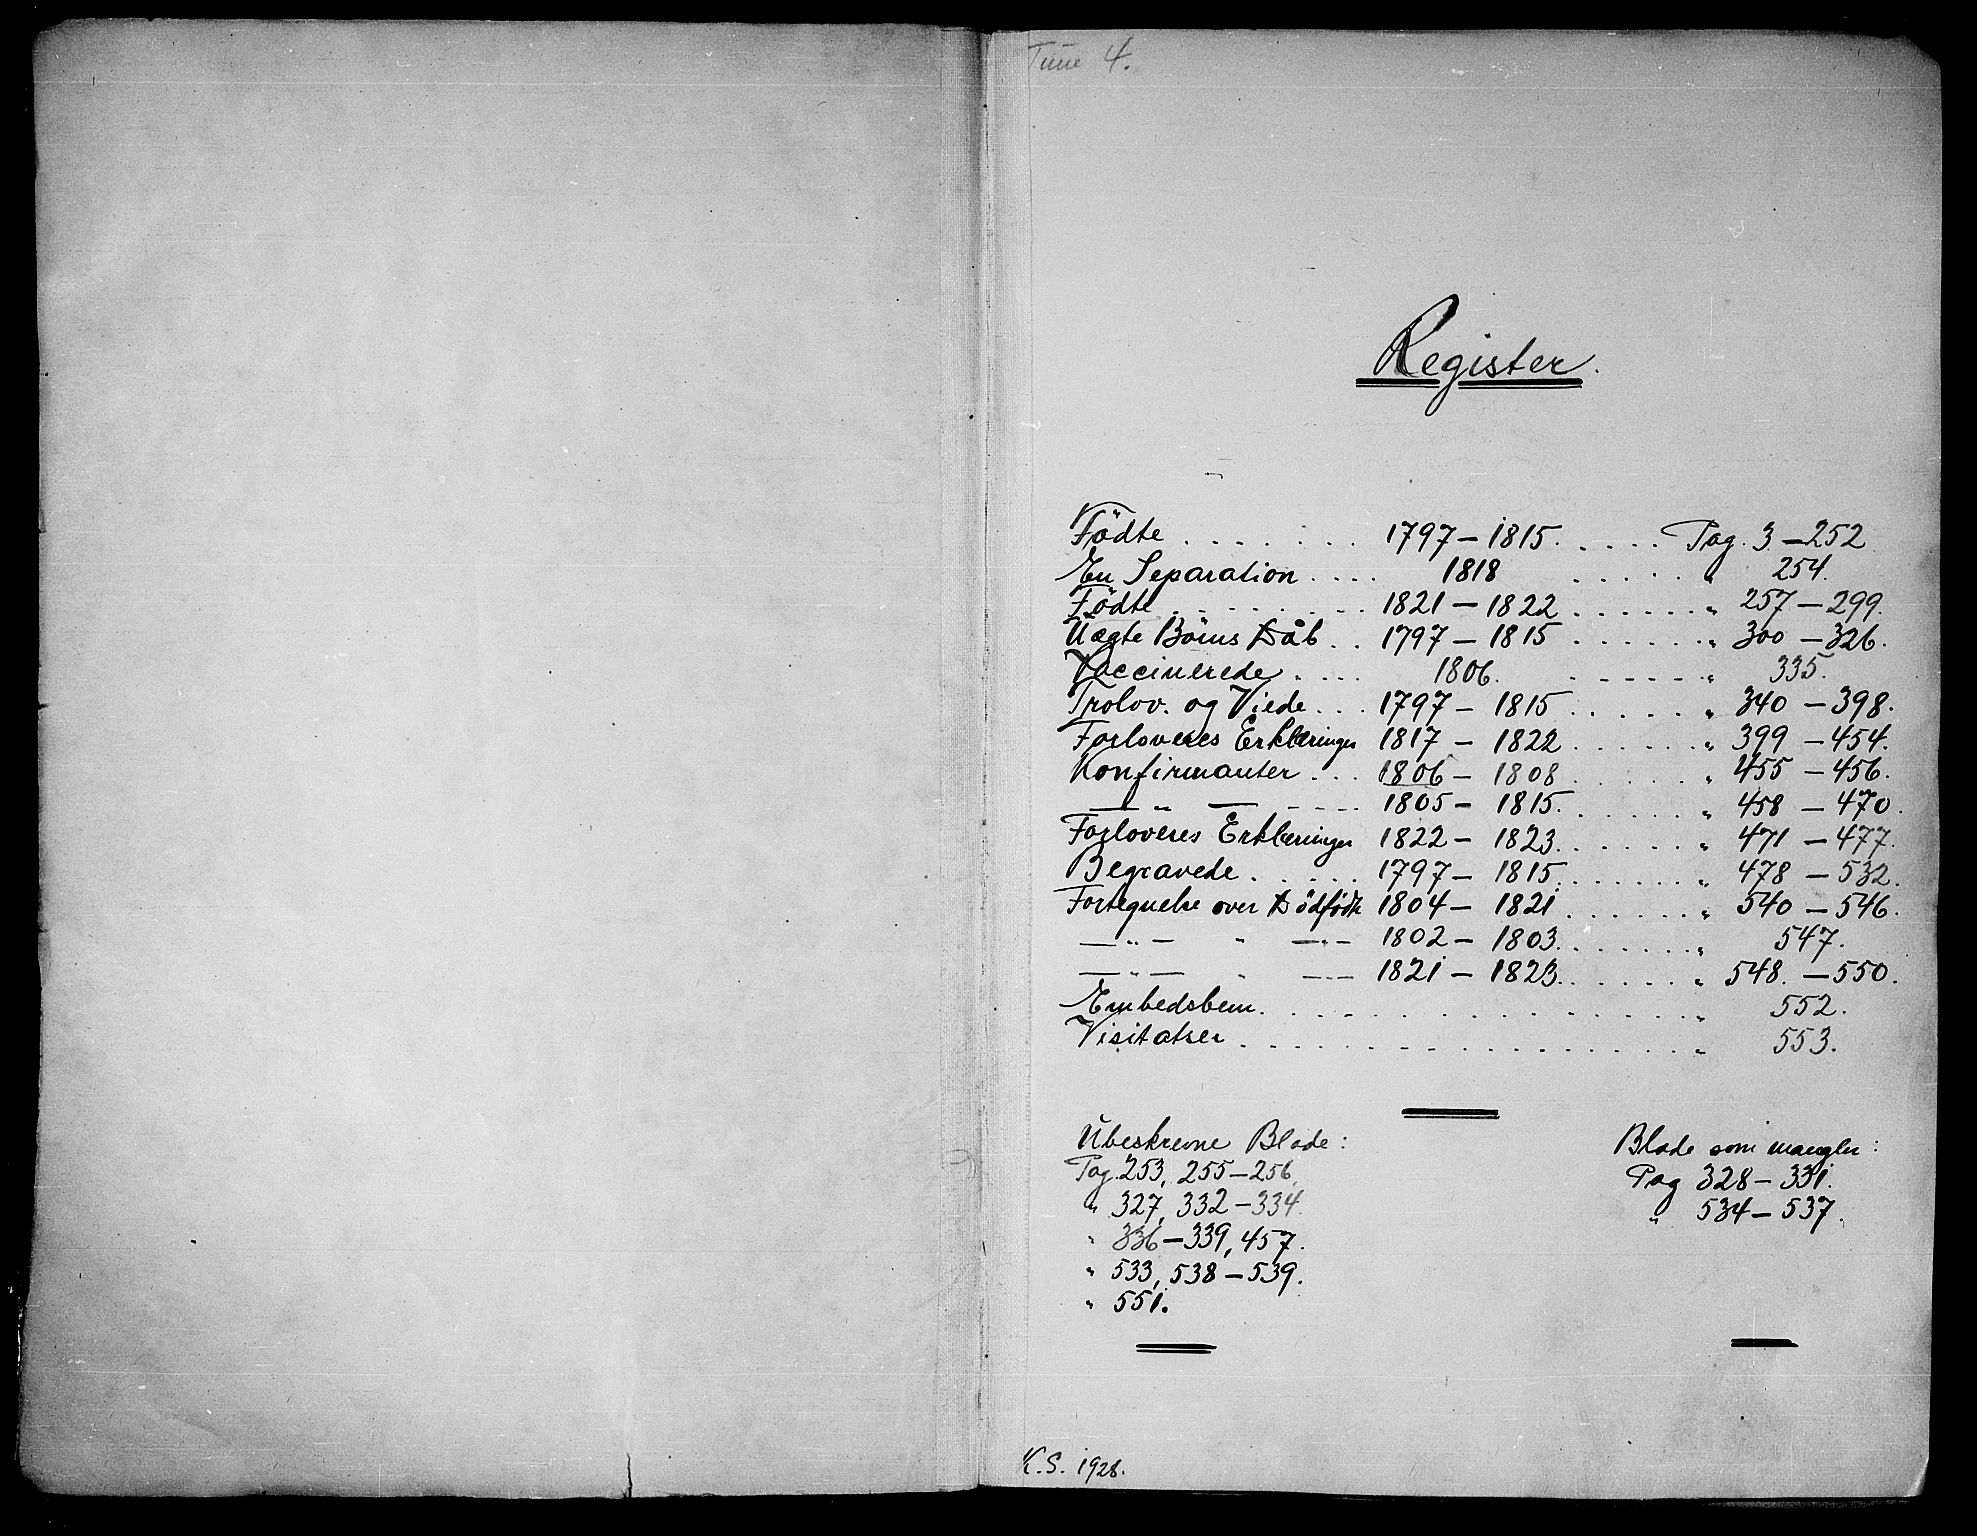 Tune 4.
Register.
Födte . . . . . . . 1797 – 1815. . . . . Pag. 3 – 252
En Separation . . . . 1818 . . . . . „ 254.
Födte . . . . . . . . 1821 – 1822 . . . . . . „ 257 – 299.
Uægte Börns Dåb . . 1797 – 1815 . . . . . . „ 300 – 326.
Vaccinerede . . . . 1806. . . . . . . „ 335.
Trolov. og Viede . . . 1797 – 1815 . . . . . . „ 340 – 398.
Forloveres Erklæringer 1817 – 1822 . . . . . . „ 399 – 454.
Konfirmanter . . . 1806 – 1808 . . . . . . „ 455 – 456.
— „ — - - - - 1805 – 1815. . . . . . . „ 458 – 470.
Forloveres Erklæringer 1822 – 1823. . . . . . „ 471 – 477.
Begravede . . . . . 1797 – 1815. . . . . . . „ 478 – 532.
Fortegnelse over Dödfödte 1804 – 1821 . . . . . . „ 540 – 546.
— „ — „ — „ — 1802 – 1803. . . . . . „ 547.
— „ — „ — „ — 1821 – 1823. . . . . . „ 548. – 550.
Embedsbem. . . . . . . . . . . . . . . „ 552.
Visitatser . . . . . . . . . . . . . . . . „ 553.
Ubeskrevne Blade: Blade som mangler:
Pag. 253, 255 – 256, Pag 328 – 331.
„ 327, 332 – 334. „ 534 – 537.
„ 336 – 339, 457.
„ 533, 538 – 539.
„ 551.
K.S. 1928.